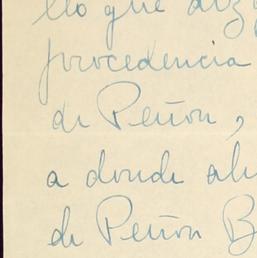 llo que diz
procedencia
de Peñon,
a donde ah
de Peñon B